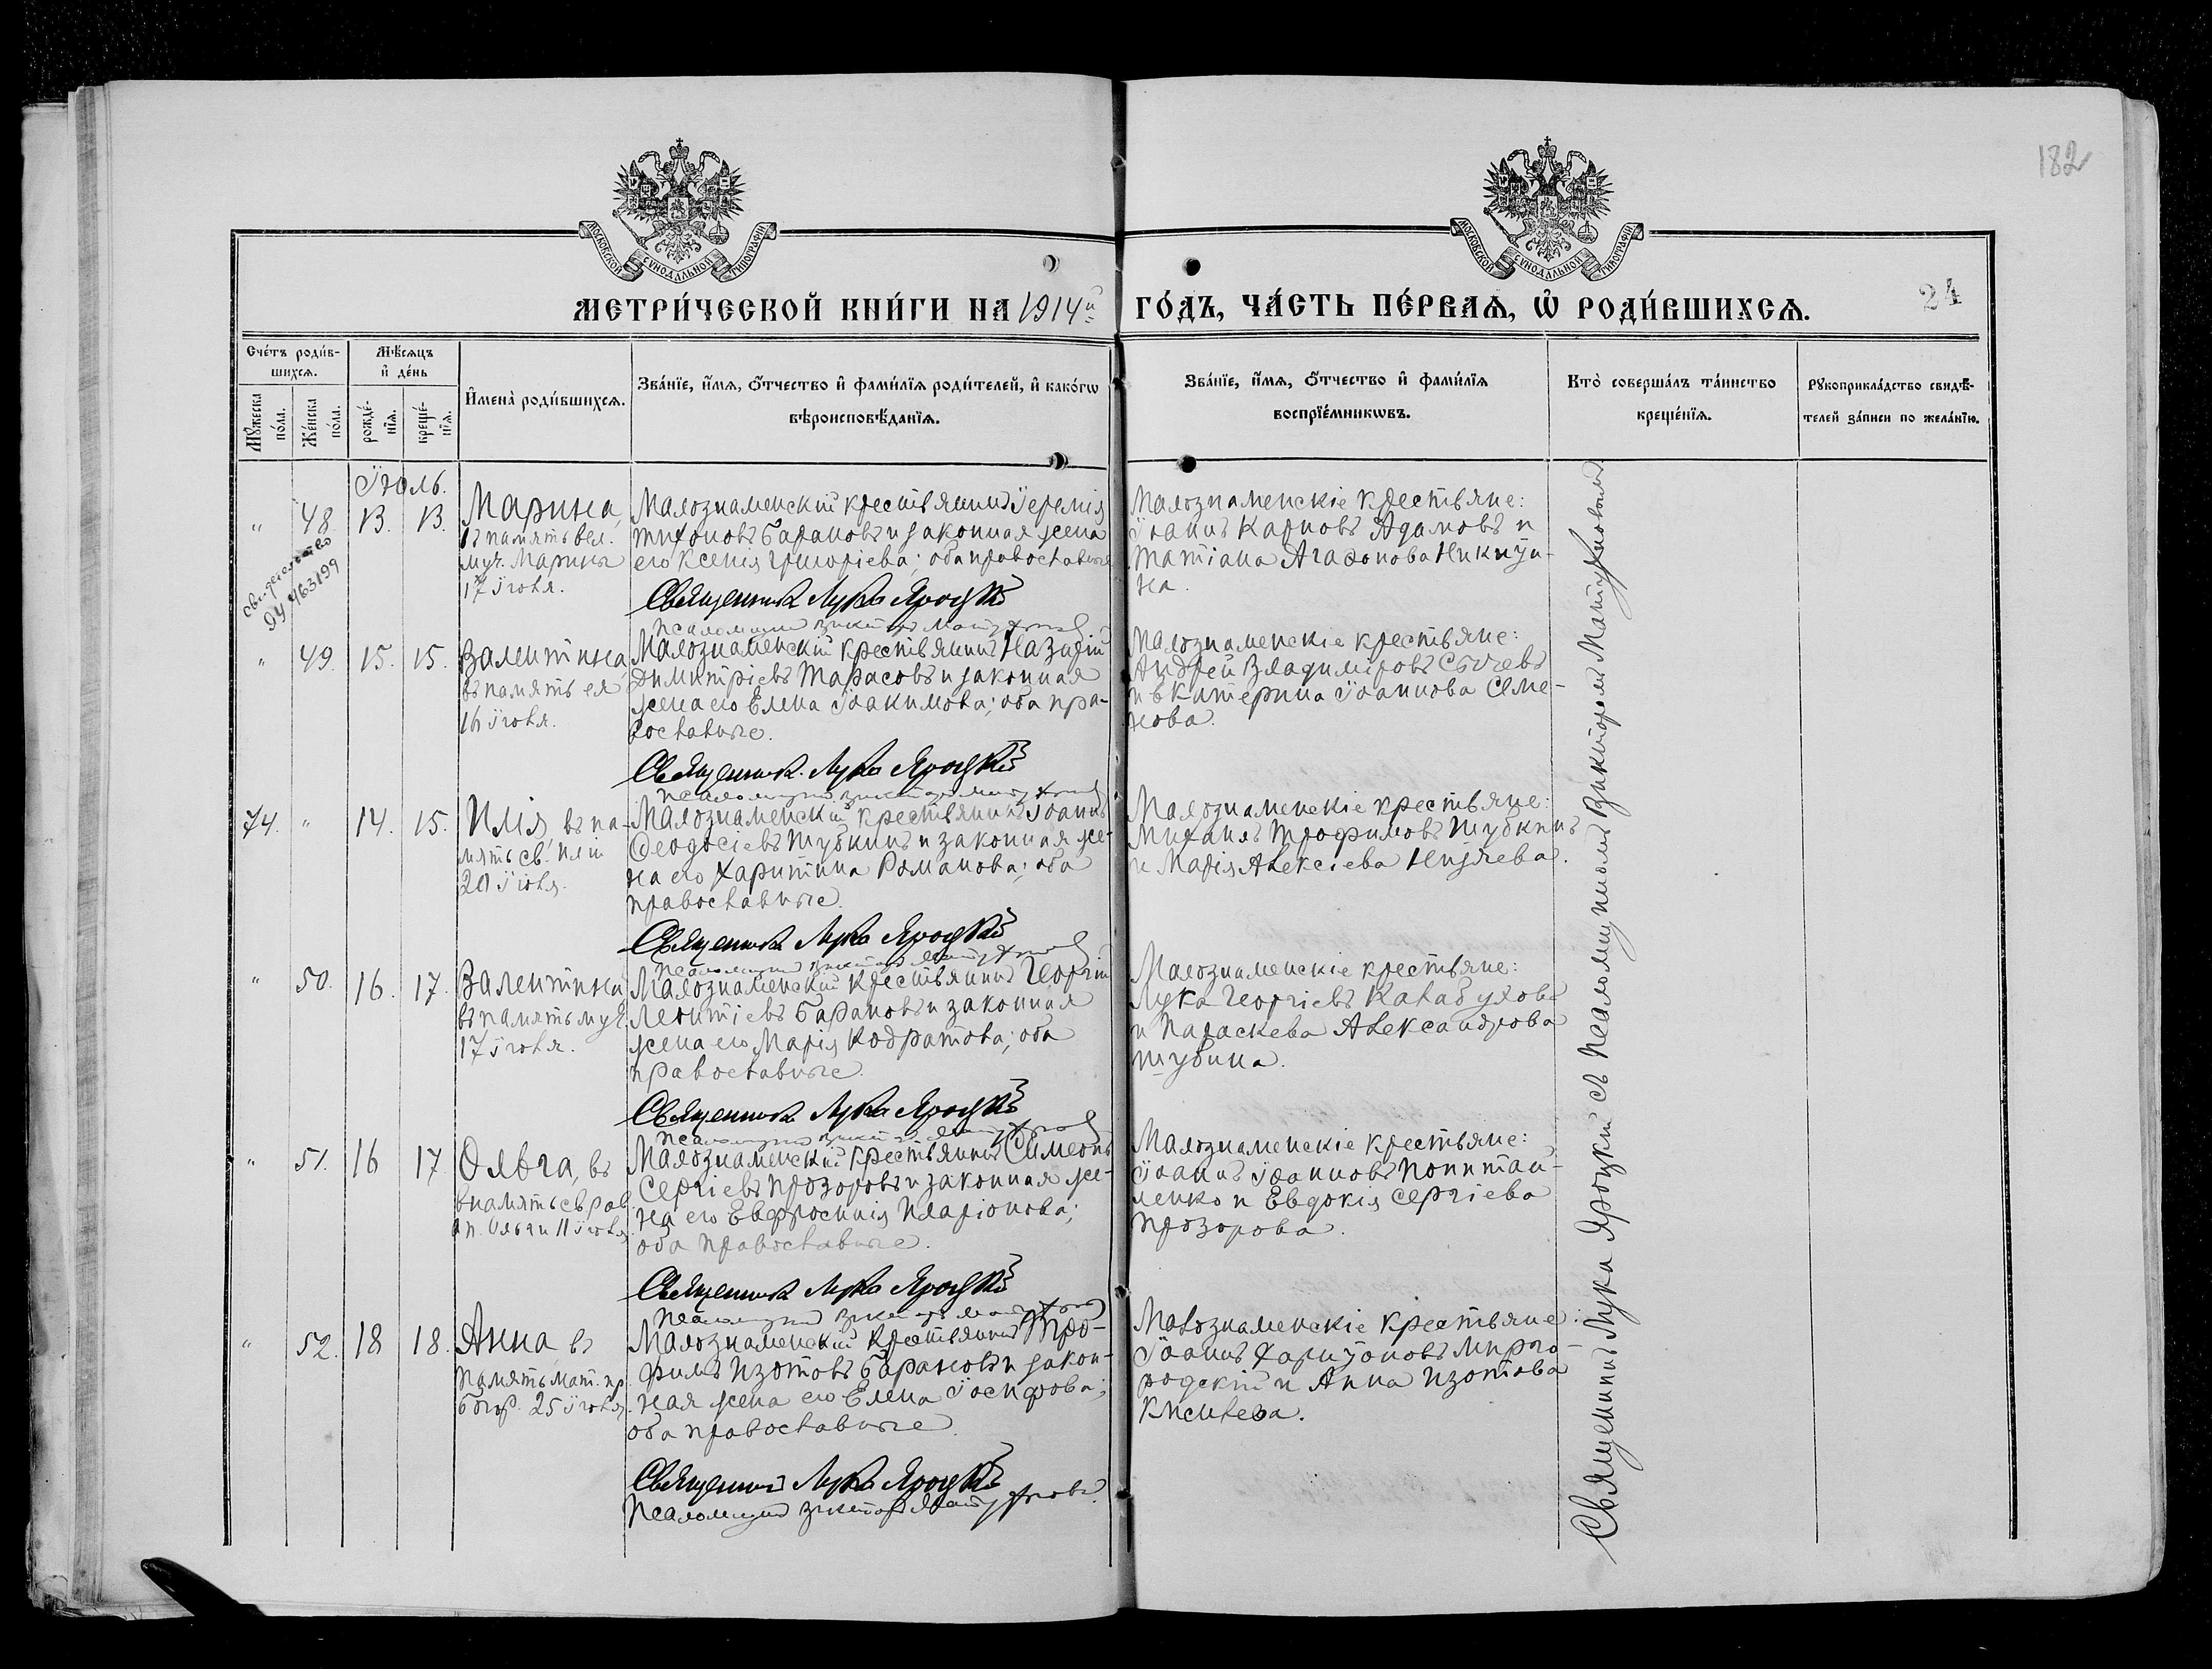 182
МОСКОВСКОЙ СѴНОДАЛЬНОЙ ТИПОГРАФІИ
МОСКОВСКОЙ СѴНОДАЛЬНОЙ ТИПОГРАФІИ
МЕТРИ́ЧЕСКОЙ КНИ́ГИ НА 1914й ГО́ДЪ, ЧА́СТЬ ПЕ́РВАѦ, Ѡ҆ РОДИ́ВШИХСѦ.
24
Сче́тъ роди́в-
шихсѧ.
Мꙋ́жеска по́ла.
Же́нска по́ла.
Мѣ́сѧцъ
и҆ де́нь
рожде́-
нїѧ.
креще́-
нїѧ.
И҆мена̀ роди́вшихсѧ.
Зва́нїе, и҆́мѧ, ѻ҆́тчество и҆ фами́лїѧ роди́телей, и҆ како́гѡ
вѣроисповѣ́данїѧ.
Зва́нїе, и҆́мѧ, ѻ҆́тчество и҆ фами́лїѧ
воспрїе́мникѡвъ.
Кто̀ соверша́лъ та́инство
креще́нїѧ.
Рꙋкоприкла́дство свидѣ́-
телей за́писи по жела́нїю.
Іюль.
" 48. 13. 13.
Свидетельство
ЯУ 463199
Марина,
въ память вел.
муч. Марины
17 Іюля.
Малознаменскій крестьянинъ Іеремія
Тихоновъ Барановъ и законная жена
его Ксенія Григоріева; оба православные
Священникъ Лука Яроцкій
Псаломщикъ Викторъ Матухновъ
Малознаменскіе крестьяне:
Іоаннъ Карповъ Адамовъ и
Татіана Агафонова Никици-
на.
" 49. 15. 15.
Валентина,
въ память ея
16 Іюля.
Малознаменскій крестьянинъ Назарій
Димитріевъ Тарасовъ и законная
жена его Елена Іоакимова; оба пра-
вославные.
Священникъ Лука Яроцкій
Псаломщикъ Викторъ Матухновъ
Малознаменскіе крестьяне:
Андрей Владиміровъ Сычевъ
и Екатерина Іоаннова Семе-
нова.
74. " 14. 15.
Илія, въ па-
мять св. Иліи
20 Іюля.
Малознаменскій крестьянинъ Іоаннъ
Феодосіевъ Шубкинъ и законная же-
на его Харитина Романова; оба
православные.
Священникъ Лука Яроцкій
Псаломщикъ Викторъ Матухновъ
Малознаменскіе крестьяне:
Михаилъ Трофимовъ Шубкинъ
и Марія Алексіева Низяева.
" 50. 16. 17.
Валентина
въ память муч.
17 Іюля.
Малознаменскій крестьянинъ Георгій
Леонтіевъ Барановъ и законная
жена его Марія Кодратова; оба
православные.
Священникъ Лука Яроцкій
Псаломщикъ Викторъ Матухновъ
Малознаменскіе крестьяне:
Лука Георгіевъ Калабуховъ
и Параскева Александрова
Шубина.
" 51. 16 17
Ольга, въ
память св. рав.
ап. Ольги 11 Іюля
Малознаменскій крестьянинъ Симеонъ
Сергіевъ Прозоровъ и законная же-
на его Евфросинія Иларіонова;
оба православные.
Священникъ Лука Яроцкій
Псаломщикъ Викторъ Матухновъ
Малознаменскіе крестьяне:
Іоаннъ Іоанновъ Попитай-
ленко и Евдокія Сергіева
Прозорова.
" 52. 18 18.
Анна, въ
память мат. пр.
Богор. 25 Іюля.
Малознаменскій крестьянинъ Тро-
фимъ Изотовъ Барановъ и закон-
ная жена его Елена Іосифова;
оба православные.
Священникъ Лука Яроцкій
Псаломщикъ Викторъ Матухновъ.
Малознаменскіе крестьяне:
Іоаннъ Харитоновъ Мирго-
родскій и Анна Изотова
Киселева.
Священникъ Лука Яроцкій съ Псаломщикомъ Викторомъ Матухновымъ